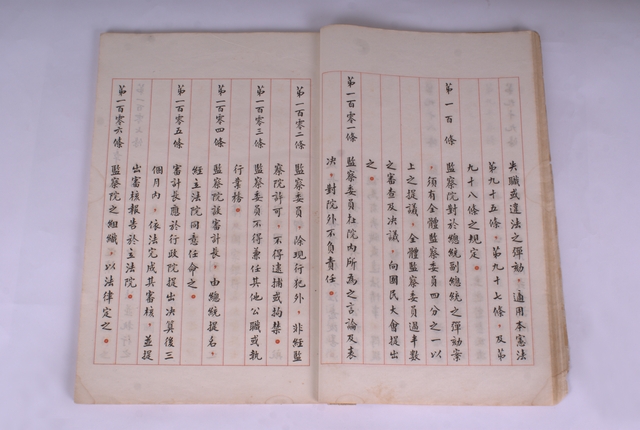 失職或違法之彈劾，適用本憲法
第九十五條、第九十七條，及第
九十八條之規定。
第一百條 監察院對於總統副總統之彈劾案
，須有全體監察委員四分之一以
上之提議，全體監察委員過半數
之審查及決議，向國民大會提出
之。
第一百零一條 監察委員在院內所為之言論及表
決，對院外不負責任。
第一百零二條 監察委員，除現行犯外，非經監
察院許可，不得逮捕或拘禁。
第一百零三條 監察委員不得兼任其他公職或執
行業務。
第一百零四條 監察院設審計長，由總統提名，
經立法院同意任命之。
第一百零五條 審計長應於行政院提出決算後三
個月內，依法完成其審核，並提
出審核報告於立法院。
第一百零六條 監察院之組織，以法律定之。